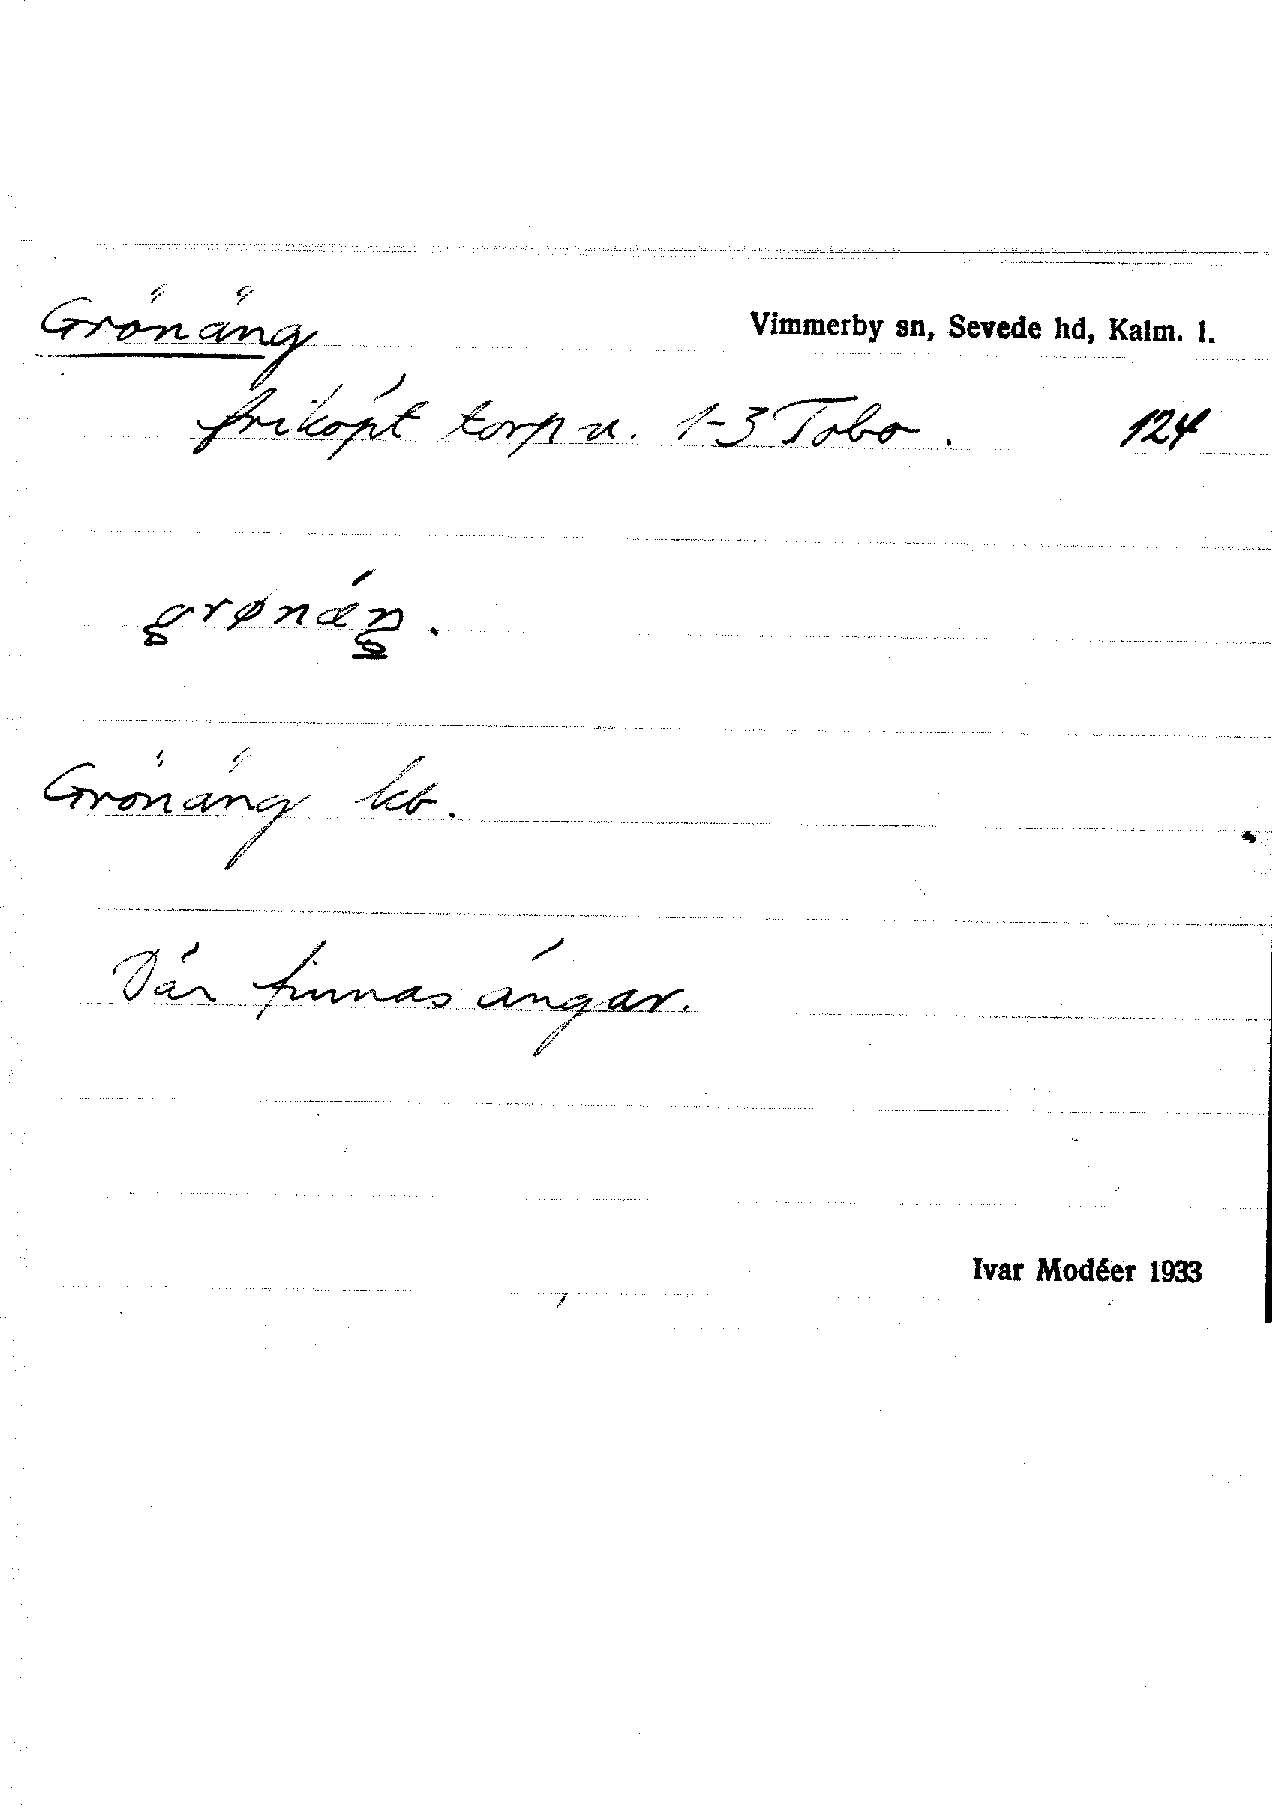 Grönäng Vimmerby sn, Sevede hd, Kalm. l.
friköpt torp u. 1-3 Tobo. 124
grønǽŋ.
Grönäng kb.
Där finnas ängar.
Ivar Modéer 1933